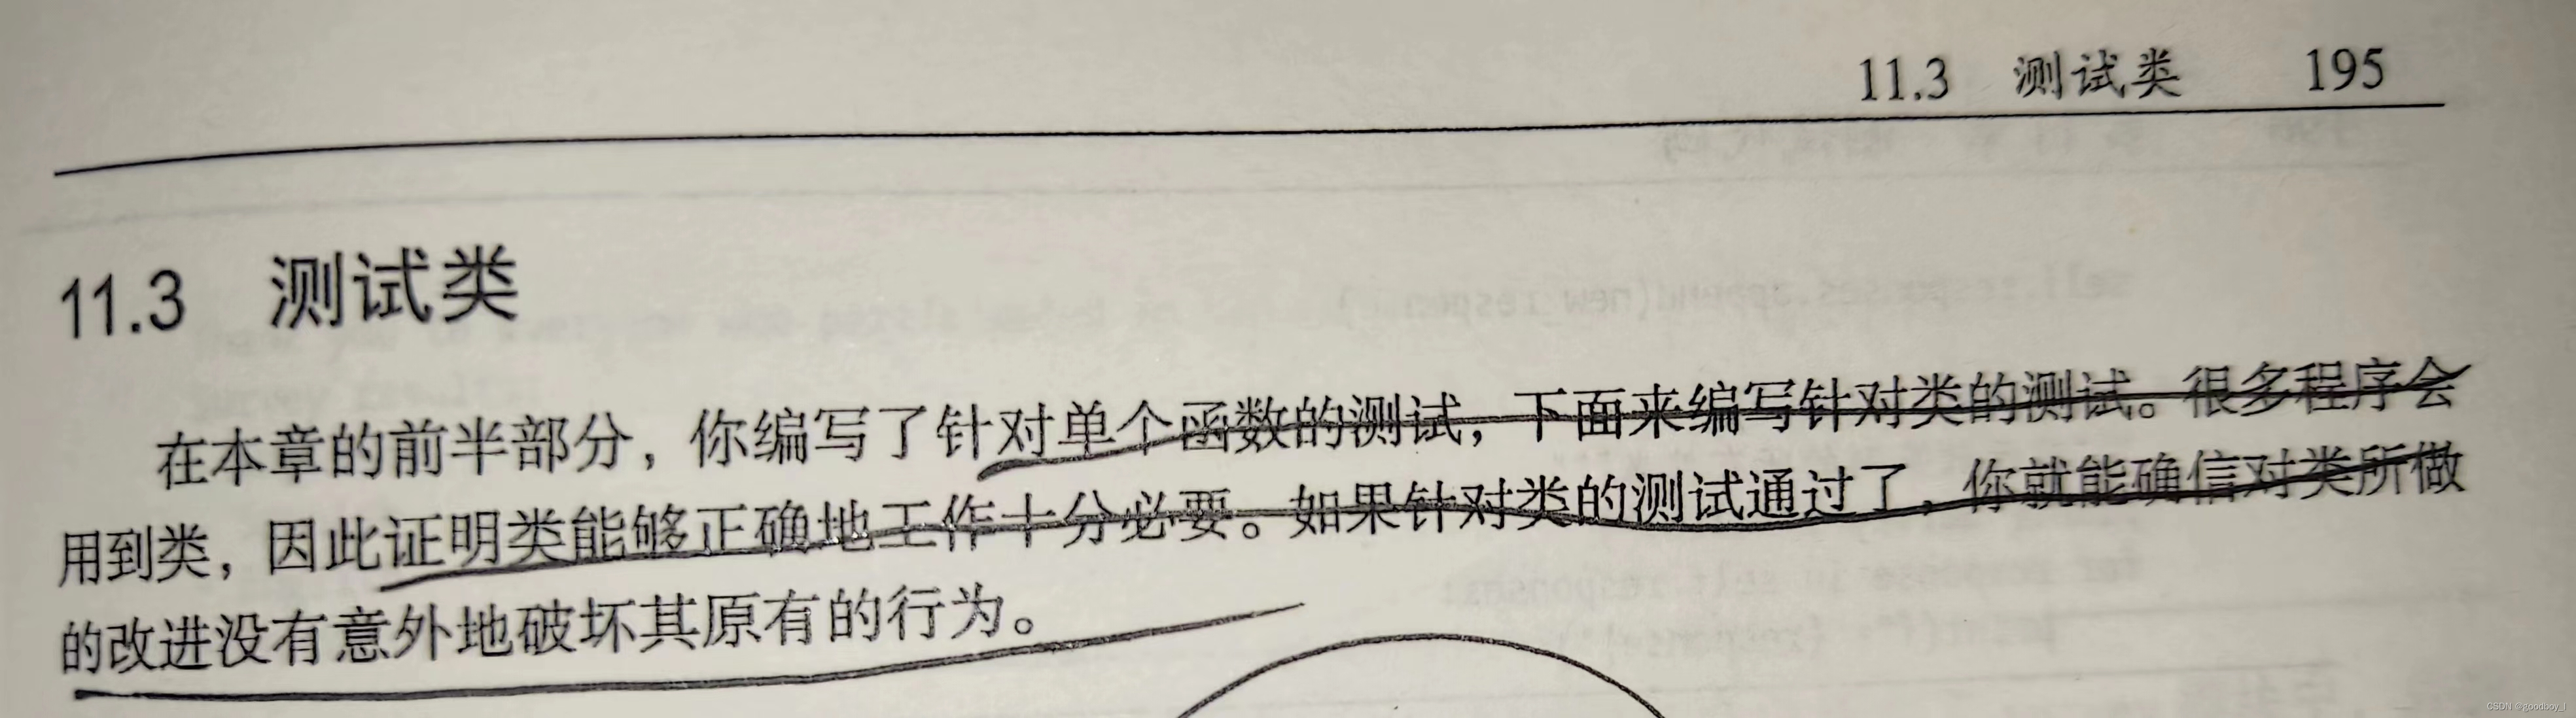 11.3 测试类 195
11.3 测试类
在本章的前半部分，你编写了针对单个函数的测试，下面来编写针对类的测试。很多程序会
用到类，因此证明类能够正确地工作十分必要。如果针对类的测试通过了，你就能确信对类所做
的改进没有意外地破坏其原有的行为。
CSDN @goodboy_l